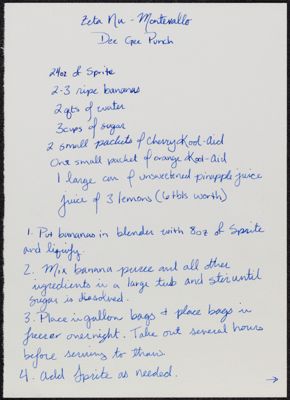 Zeta Nu - Montevallo
Dee Gee Punch
24oz of Sprite
2-3 ripe bananas
2 qts of water
3 cups of sugar
2 small packets of Cherry Kool-Aid
One small packet of orange Kool-Aid
1 large can of unsweetened pineapple juice
juice of 3 lemons (6 tbls worth)
1. Put bananas in blender with 8oz of Sprite
and liquify.
2. Mix banana puree and all other
ingredients in a large tub and stir until
sugar is dissolved.
3. Place in gallon bags & place bags in
freezer overnight. Take out several hours
before serving to thaw.
4. Add Sprite as needed.
→